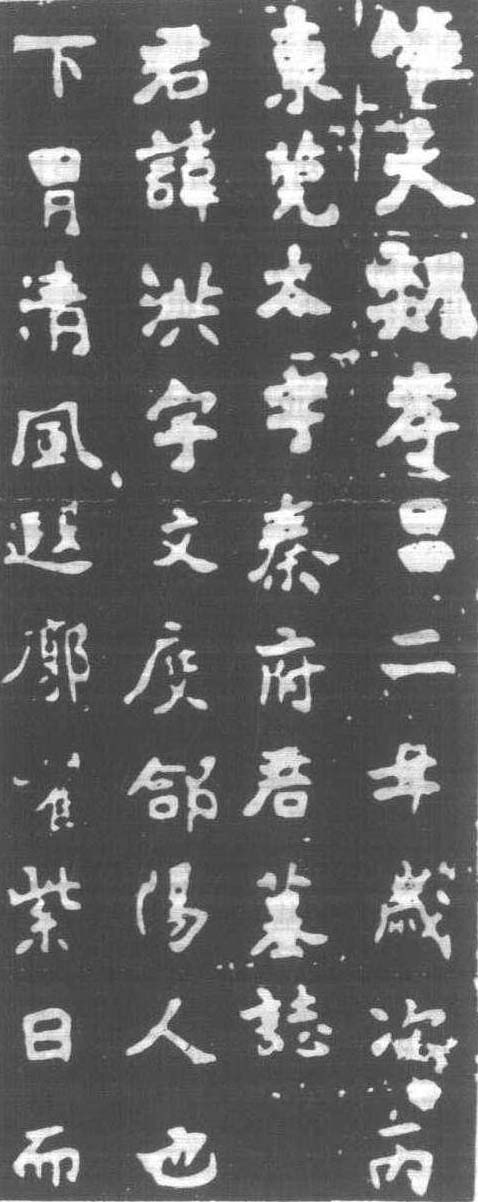 維天魏孝昌二年歲次丙
東莞太守秦府君墓誌
君諱洪字文度郃陽人也
下胄清風遐廓紫日而